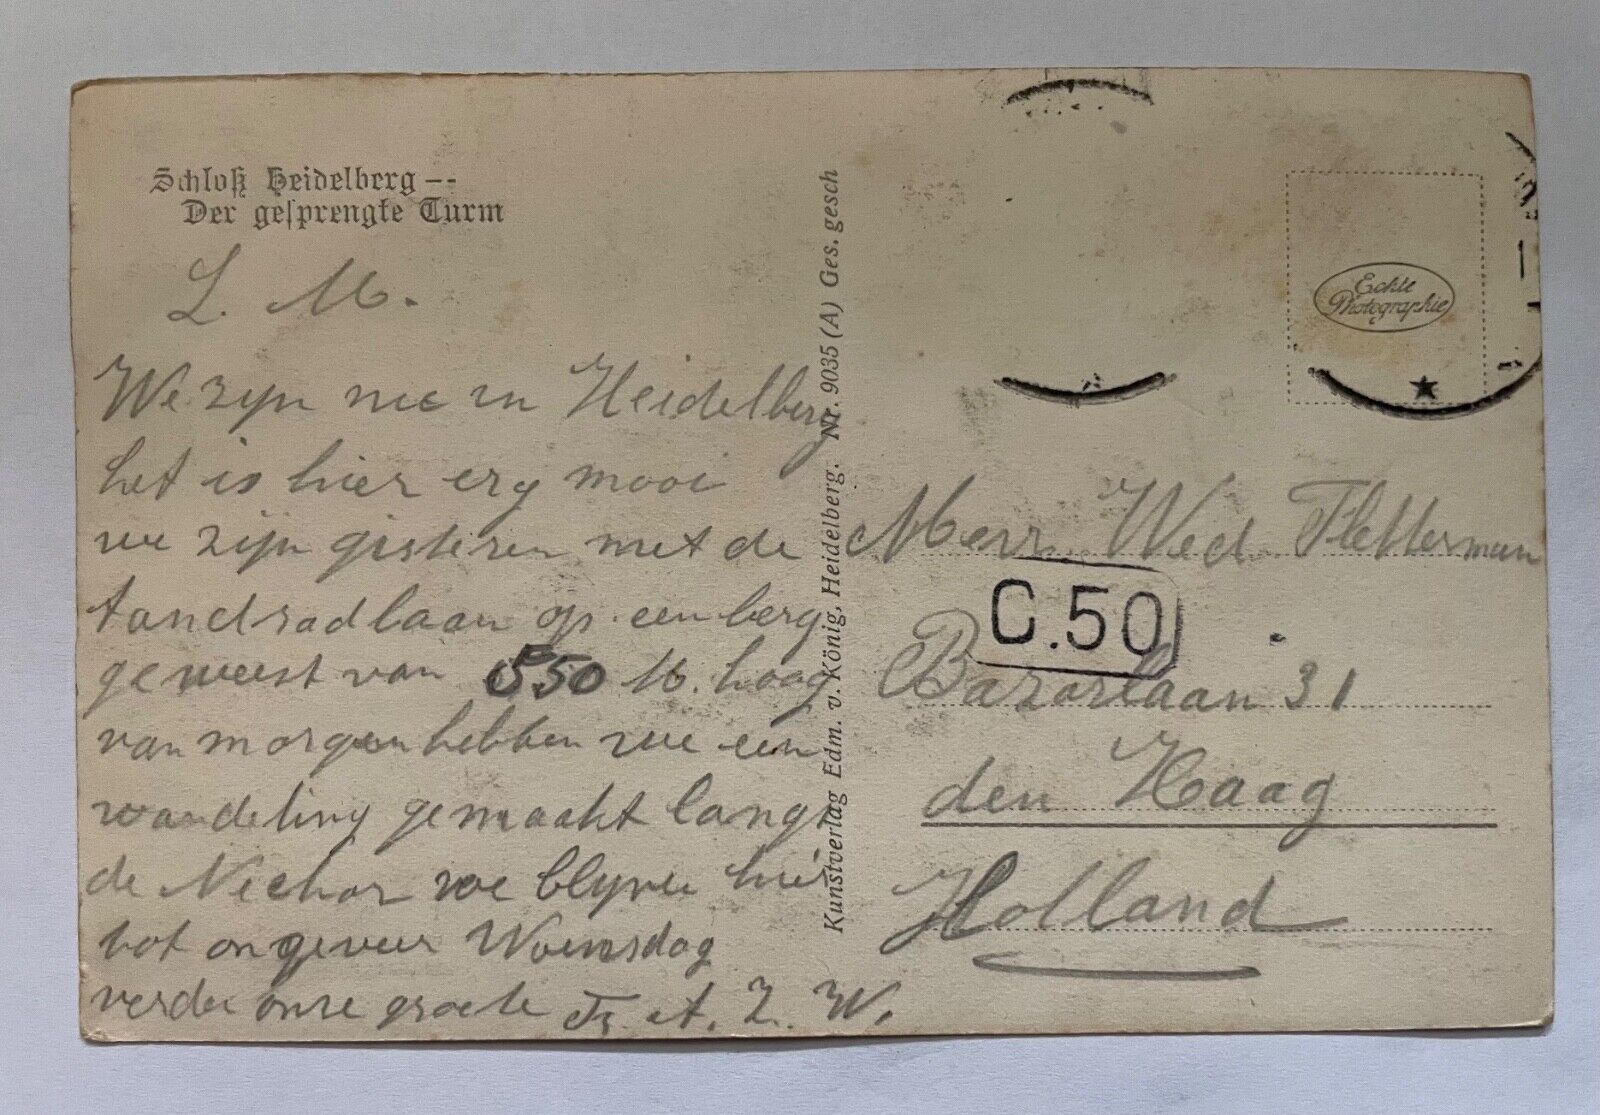 Schloß Heidelberg --
Der gesprengte Turm
L. M.
We zyn nu in Heidelberg
het is hier erg mooi
we zijn gisteren met de
tandradlaan op een berg
geweest van 550 M. hoog
van morgen hebben we een
wandeling gemaakt langs
de Neckar we blyven hier
tot ongeveer Woensdag
verder onze groete A. Z. W.
Kunstverlag Edm. v. König, Heidelberg. Nr. 9035 (A) Ges. gesch
Echte
Photographie
Merr Wed Fletterman
C.50
Bazarlaan 31
den Haag
Holland